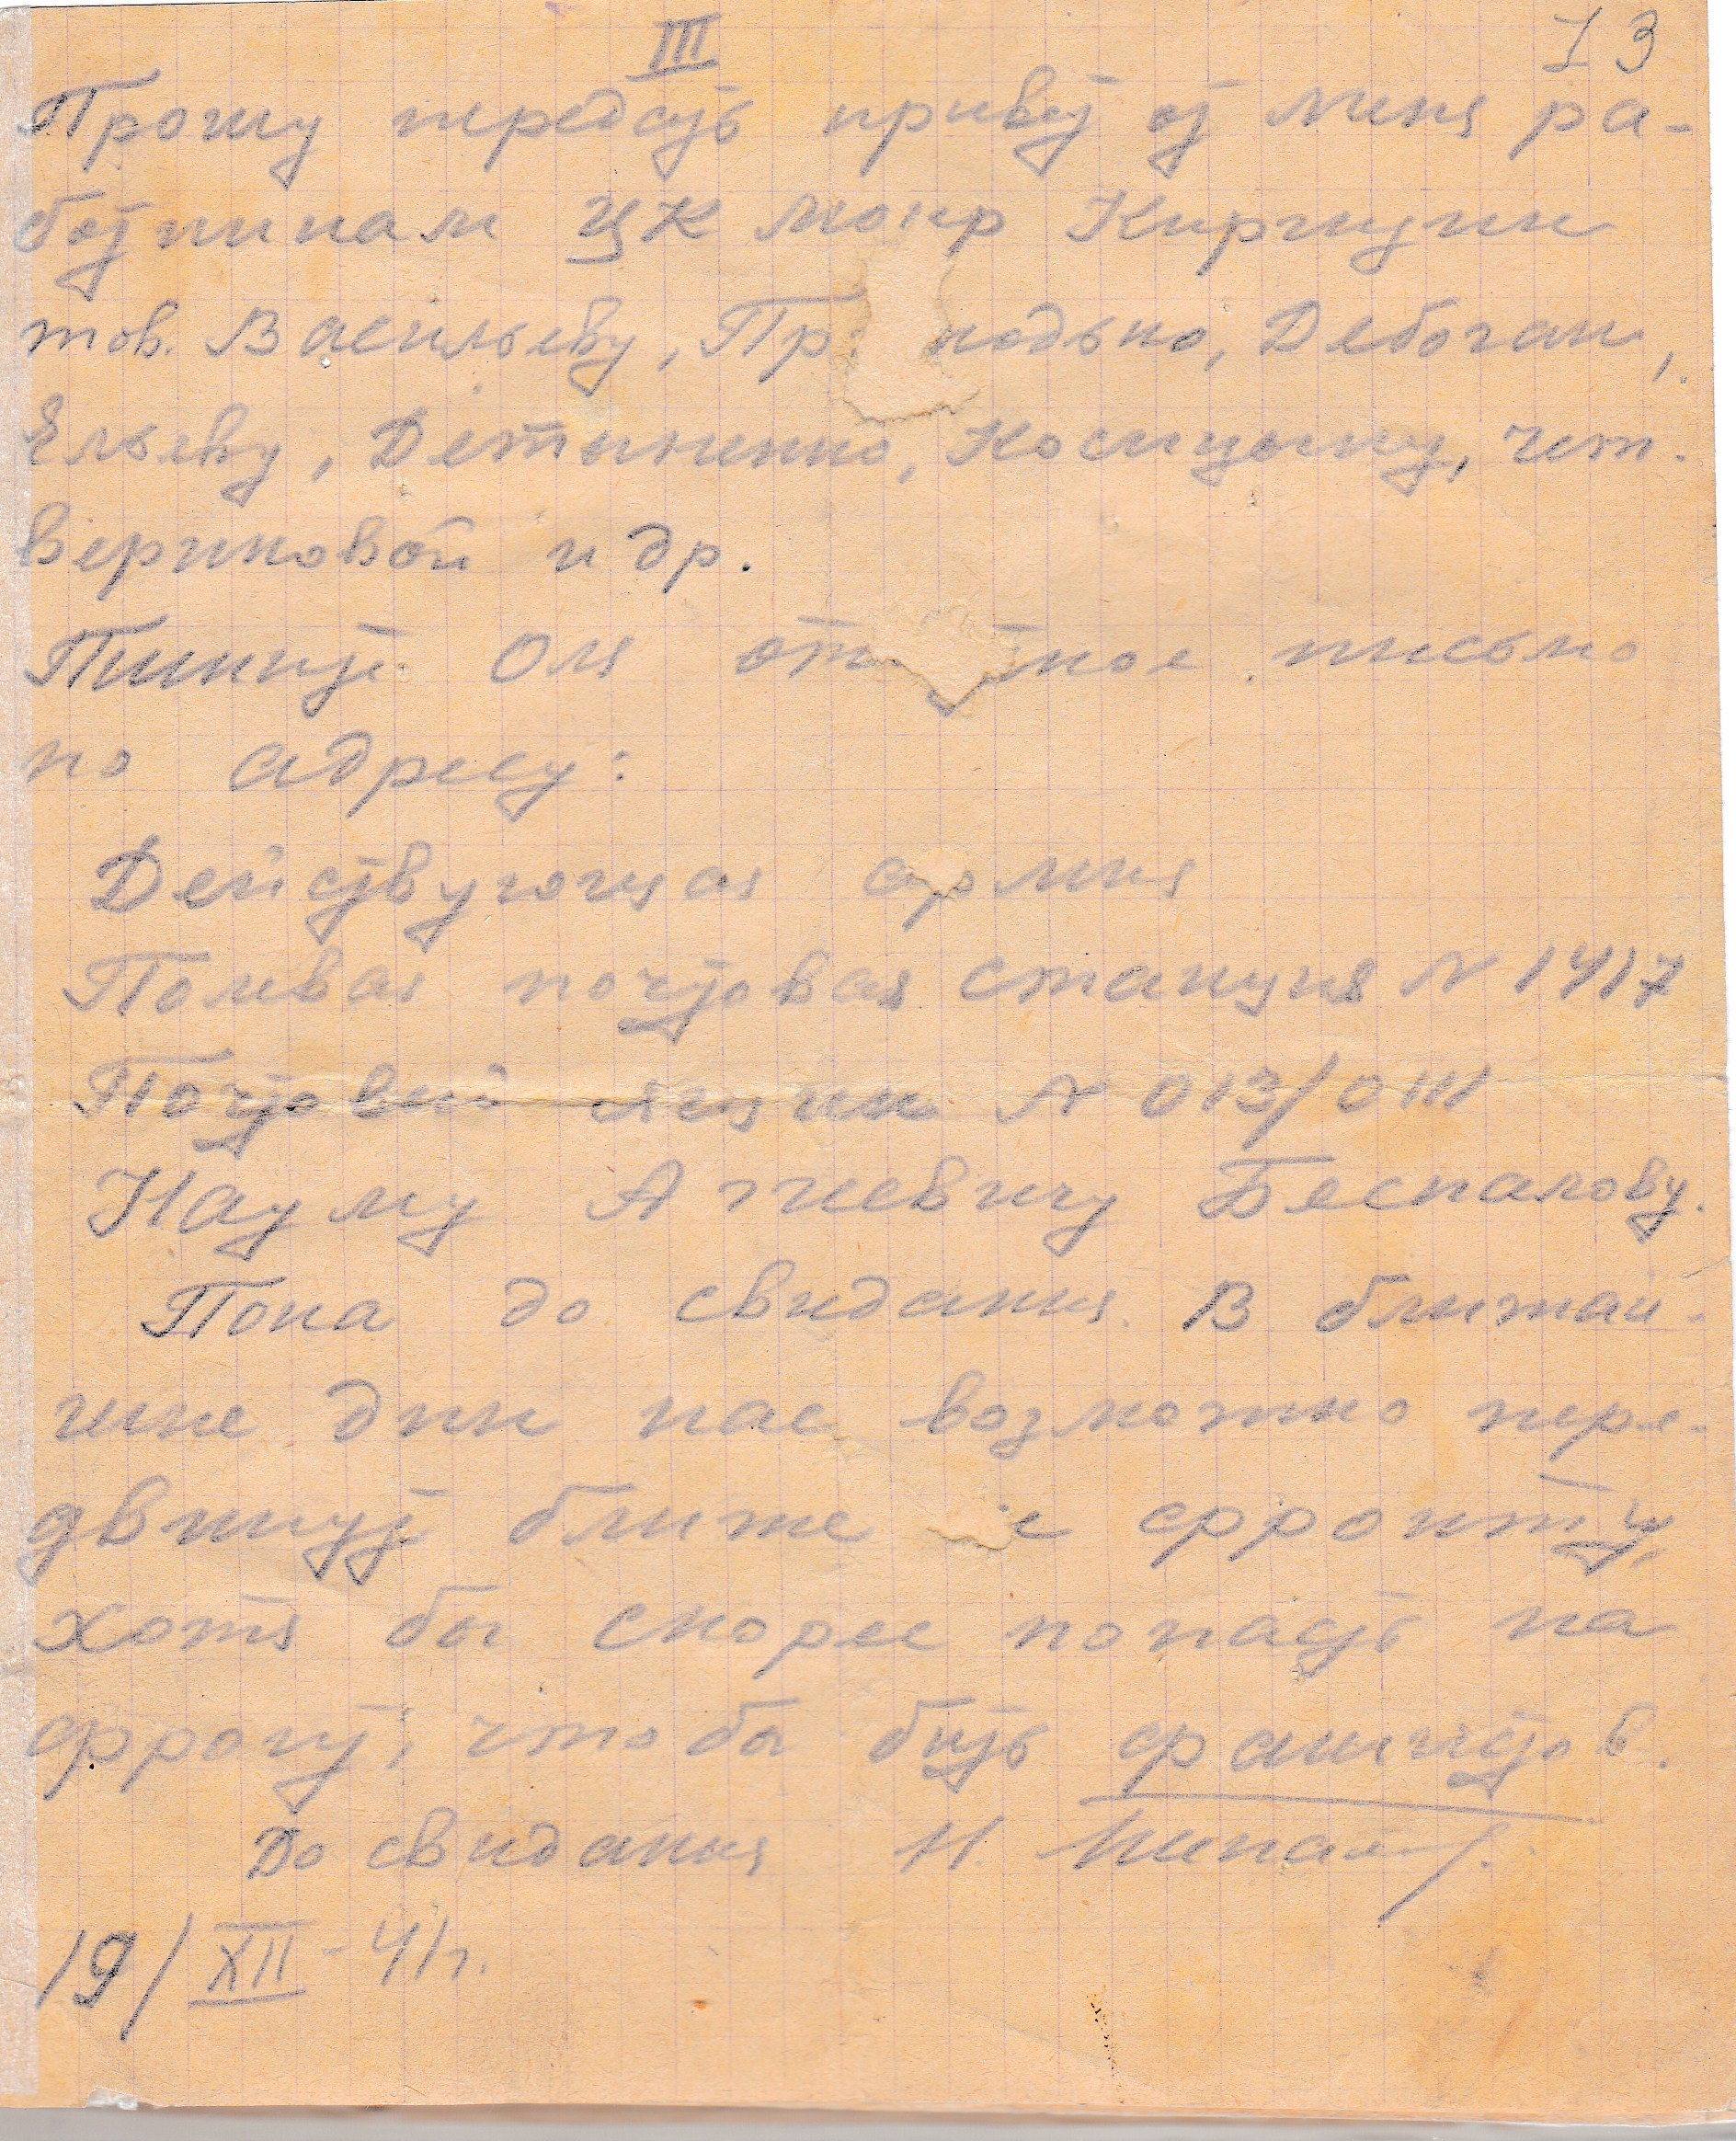 III 13
Прошу передать привет от меня ра-
ботникам ЦК мопр Киргизии
тов. Васильеву, Пр нодько,
и др.
Пишите Оля ное письмо
по адресу:
Действующая армия
Полевая почтовая станция N 1417
Почтовый ящик N 013/0111
Науму Беспалову.
Пока до свидания. В ближай-
шие дни нас возможно пере-
двинут ближе к фронту,
хотя бы скорее попасть на
фронт, что бы бить фашистов.
До свидания Н.
19/XII-41г.